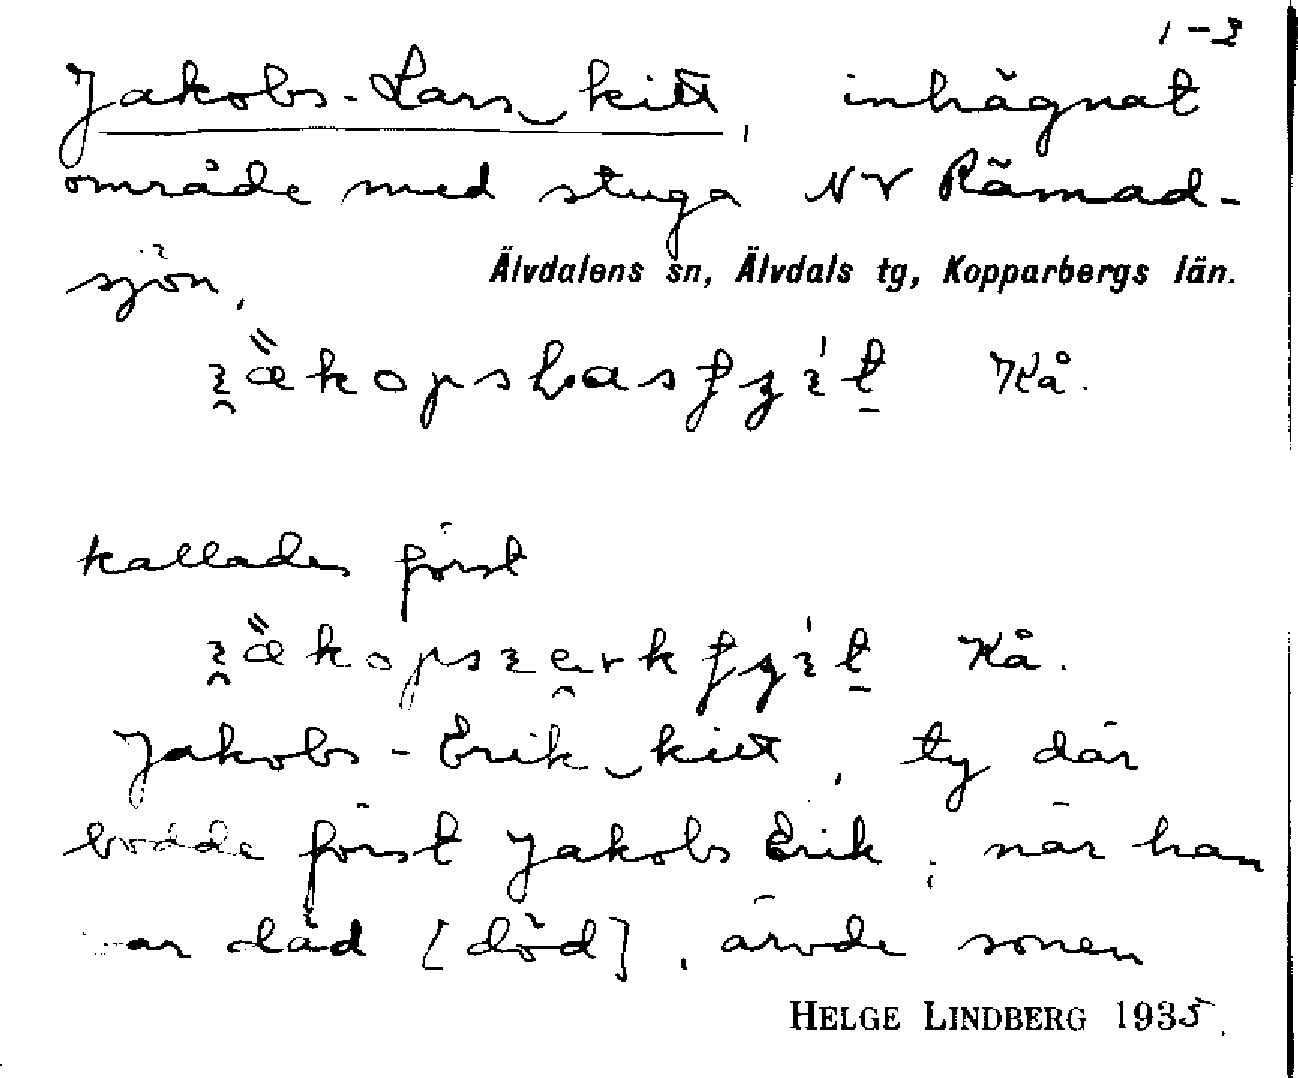 1-2
Jakobs-Lars‿kitt, inhägnat
område med stuga NV Rämad-
sjön,
Älvdalens sn, Älvdals tg, Kopparbergs län.
Kå.
kallades först
Kå.
Jakobs-Erik‿kitt, ty där
bodde först Jakobs Erik; när han
var dåd [död], ärvde sonen
HELGE LINDBERG 1935.